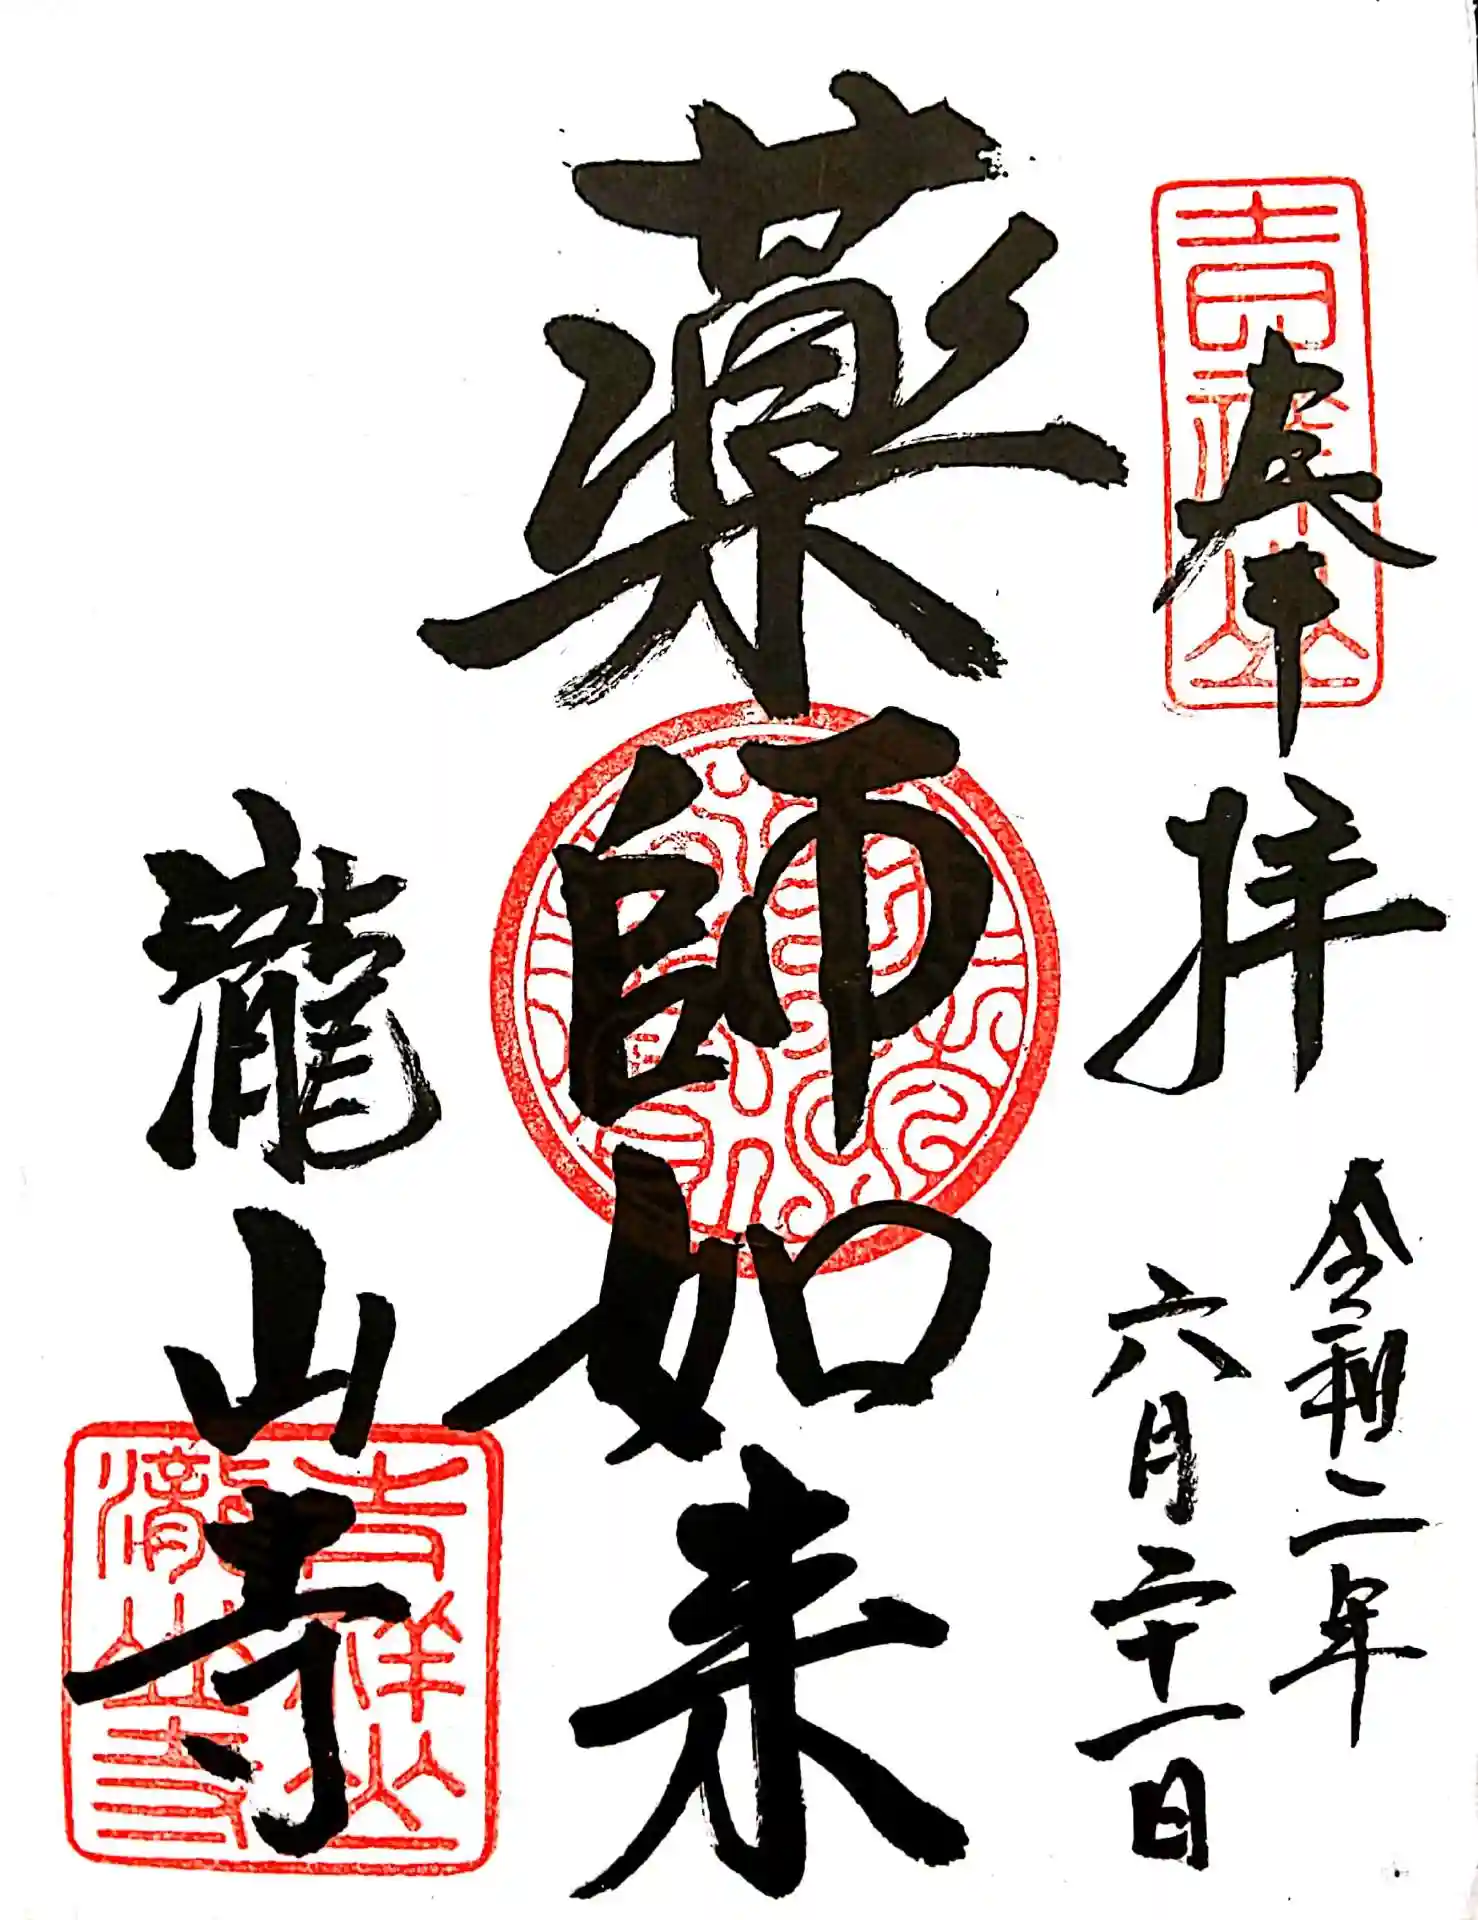 奉拝
令和二年
六月二十一日
薬師如来
瀧山寺
吉祥山
吉祥山
瀧山寺